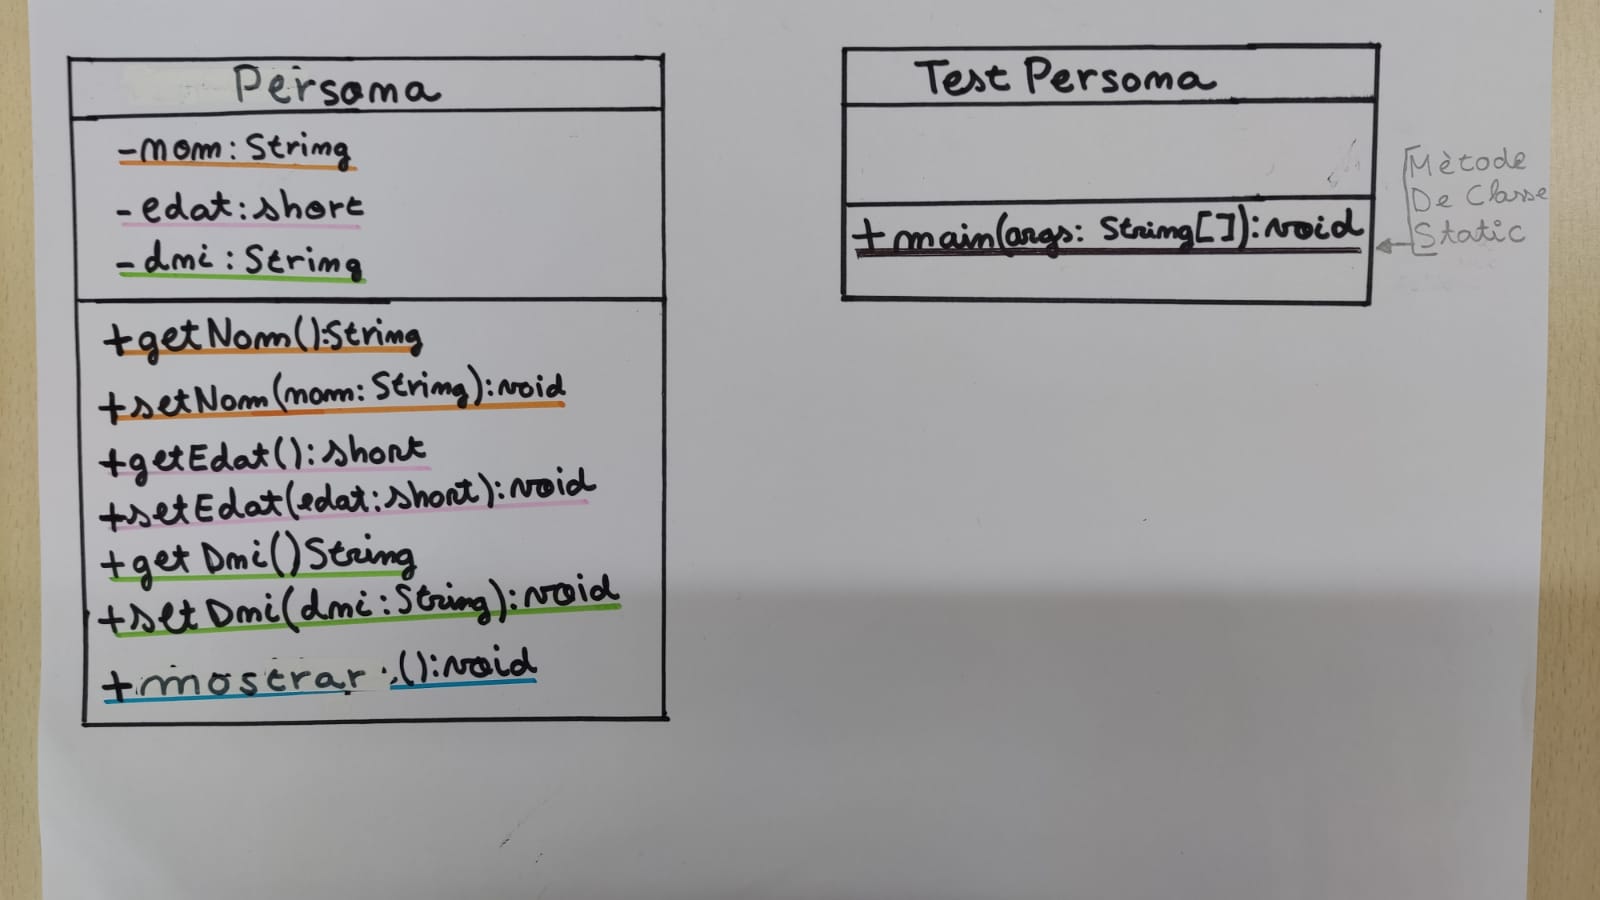 Persona
-nom: String
-edat: short
-dni: String
+getNom():String
+setNom(nom: String):void
+getEdat(): short
+setEdat(edat: short): void
+getDni()String
+setDni(dni: String): void
+mostrar.():void
Test Persona
+main(args: String[]): void
Mètode
De Classe
Static